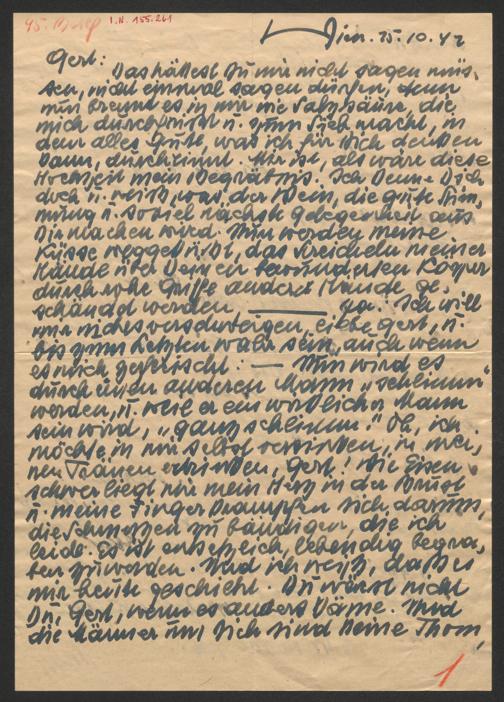 95. Brief I.N. 155.261
Wien. 25.10.42
Gert:
Das hättest Du mir nicht sagen müs-
sen, nicht einmal sagen dürfen, denn
nun brennt es in mir wie Salzsäure, die
mich durchfrißt u. zum Sieb macht, in
dem alles Gute, was ich für Dich denken
kann, durchrinnt. Mir ist, als wäre diese
Hochzeit mein Begräbnis! Ich kenne Dich
doch u. weiß, was der Wein, die gute Stim-
mung u. soviel nächste gelegenheit aus
Dir machen wird. Nun werden meine
Küsse weggeküßt, das streicheln meiner
Hände über Deinen bewunderten Körper
durch rohe Griffe anderer Hände ge-
schändet werden ja! Ich will
mir nichts verschweigen, liebe Gert, u.
bis zum Letzten wahr sein, auch wenn
es mich zerfrischt: — Nun wird es
durch einen anderen Mann „schlimm"
werden, u. weil er ein wirklicher Mann
sein wird, „ganz schlimm." Oh, ich
möchte in mir selbst versinken, in mei-
nen Tränen ertrinken, Gert! Wie Eisen
schwer liegt mir mein Herz in der Brust
u. meine Finger krampfen sich darum,
die Schmerzen zu bändigen, die ich
leide. Es ist entsetzlich, lebendig begra-
ben zu werden. Und ich weiß, daß es
mir heute geschieht. Du wärst nicht
Du, Gert, wenn es anders käme. Und
die Männer um Dich sind keine Thom
1